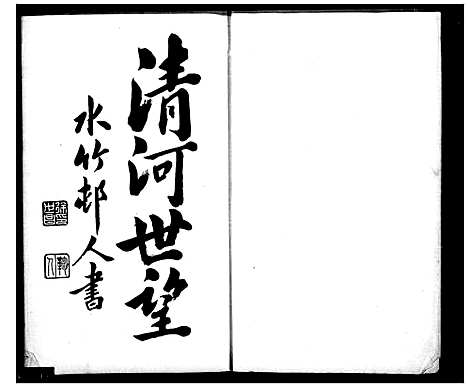 清河世望
水竹邨人書